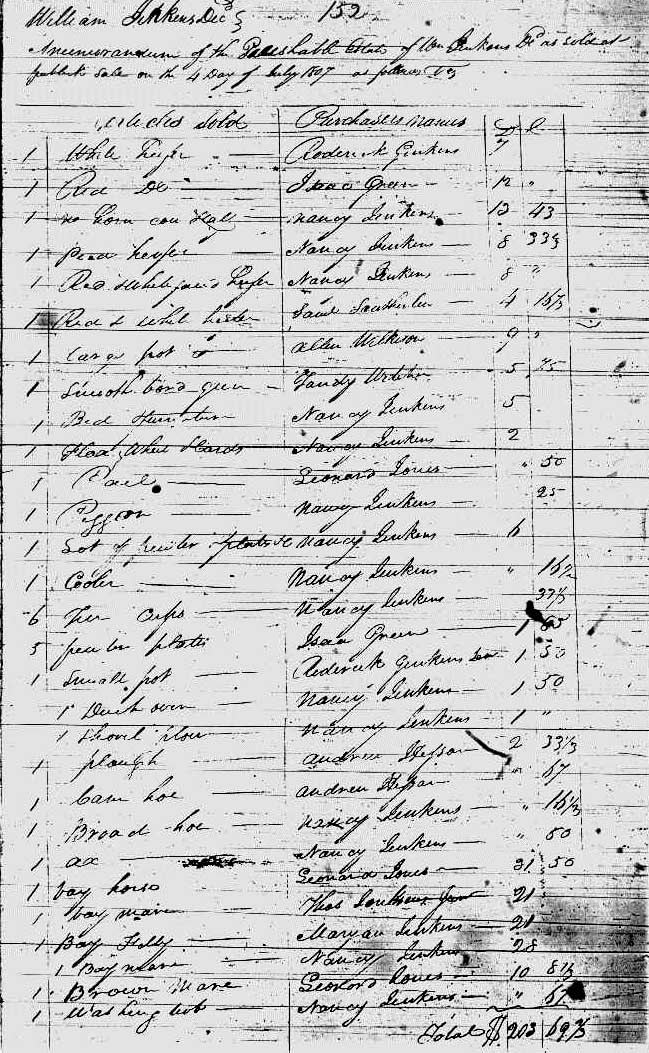 William Jenkens Decd 152
A memorandum of the Perishable Estate of Wm Jenkens Dcd as sold at
publick sale on the 4 Day of July 1807 as follows Viz
Articles Sold Purchasers names D C
1 White heifer Roderick Jenkens 7
1 Red Do Isaac Green 12 "
1 no horn cow & Calf Nancy Jenkens 13 43
1 heifer Nancy Jenkens 8 33⅓
1 Red & White heifer Nancy Jenkens 8 "
1 Red & White heifer Saml 4 16⅔
1 large pot Allen Wilkerson 9 "
1 Smooth bord gun 5 75
1 Bed & Furniture Nancy Jenkens 5
1 Flax Wheel & Cards Nancy Jenkens 2
1 Pail Leonard Jones " 50
1 Piggon Nancy Jenkens 25
1 Lot of pewter plates &c Nancy Jenkens 6
1 Cooler Nancy Jenkens " 16½
6 Tin Cups Nancy Jenkens 37½
5 pewter plates Isaac Green 1
1 Small pot Roderick Jenkens 1 50
1 Duch oven Nancy Jenkens 1 50
1 Shovel plow Nancy Jenkens 1 "
1 plough Andrew 2 33⅓
1 Cane hoe Andrew " 67
1 Broad hoe Nancy Jenkens " 16⅔
1 ax Nancy Jenkens " 50
1 bay horse Leonard Jones 31 50
1 bay mare Thos 21
1 Bay Filly Maryan Jenkens 21
1 Bay mare Nancy Jenkens 28
1 Brown Mare Leonard Jones 10 8⅓
1 Washing tub Nancy Jenkens " 67
Total $ 203 69⅔